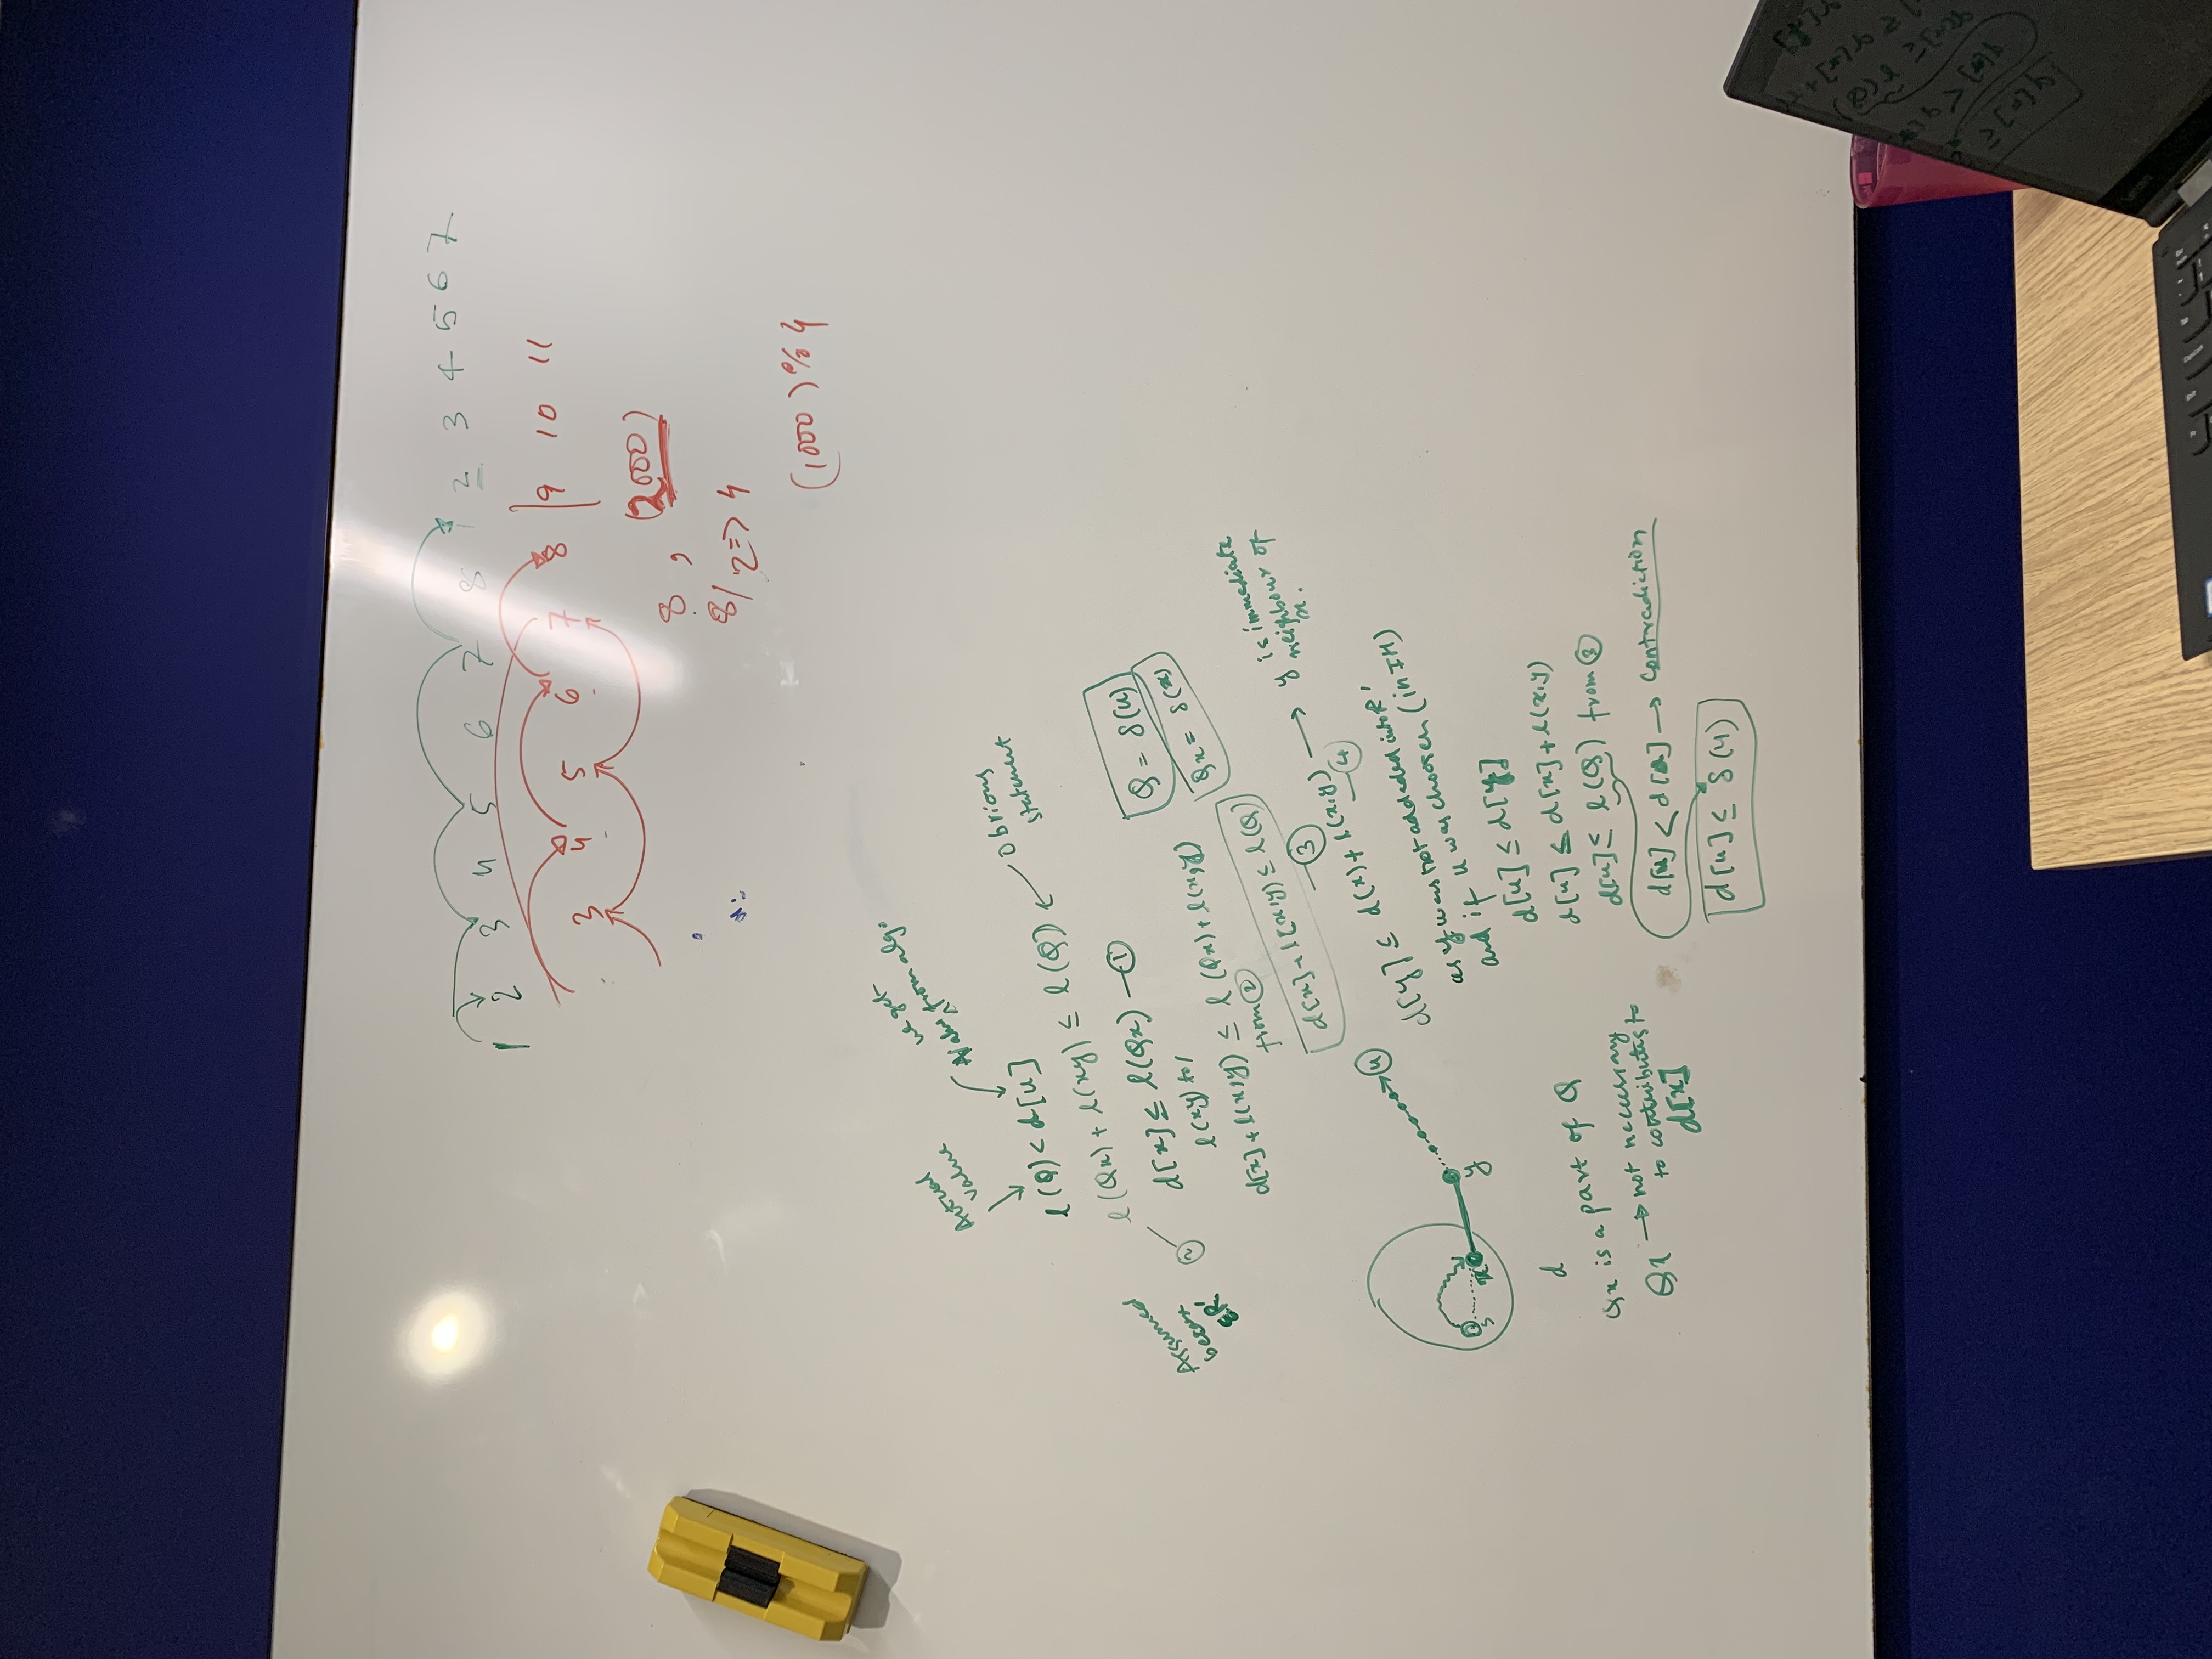 1 2 3 4 5 6 7 8 1 2 3 4 5 6 7
3 4 5 6 7 8 | 9 10 11
8 , (2000)
8/2 => 4
(1000) % 4
Actual value
we get
value from algo.
l(Q) < d[u]
l(Qx) + l(xy) ≤ l(Q)
Obvious statement
Assumed
ER'
②
d[x] ≤ l(Qx) — ①
l(xy) to
d[x] + l(x,y) ≤ l(Qx) + l(x,y)
from ②
d[x] + l(x,y) ≤ l(Q)
— ③
Q = δ(u)
Qx = δ(x)
d[y] ≤ d(x) + l(x,y) → y is immediate
neighbour of
x.
— ④
as y was not addeded into R'
and if u was choosen (in IH)
d[u] ≤ d[y]
d[u] ≤ d[x] + l(x,y)
d[u] ≤ l(Q) from ③
d[u] < d[u] → Contradiction
d[u] ≤ δ(u)
s x y u
d
Qx is a part of Q
Qx → not necessary
to contributes to
d[x]